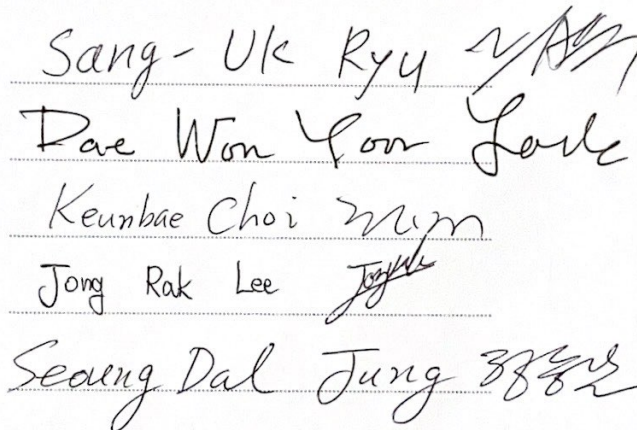 Sang-Uk Ryu
Dae Won Yoon
Keunbae Choi
Jong Rak Lee
Seoung Dal Jung 정승달